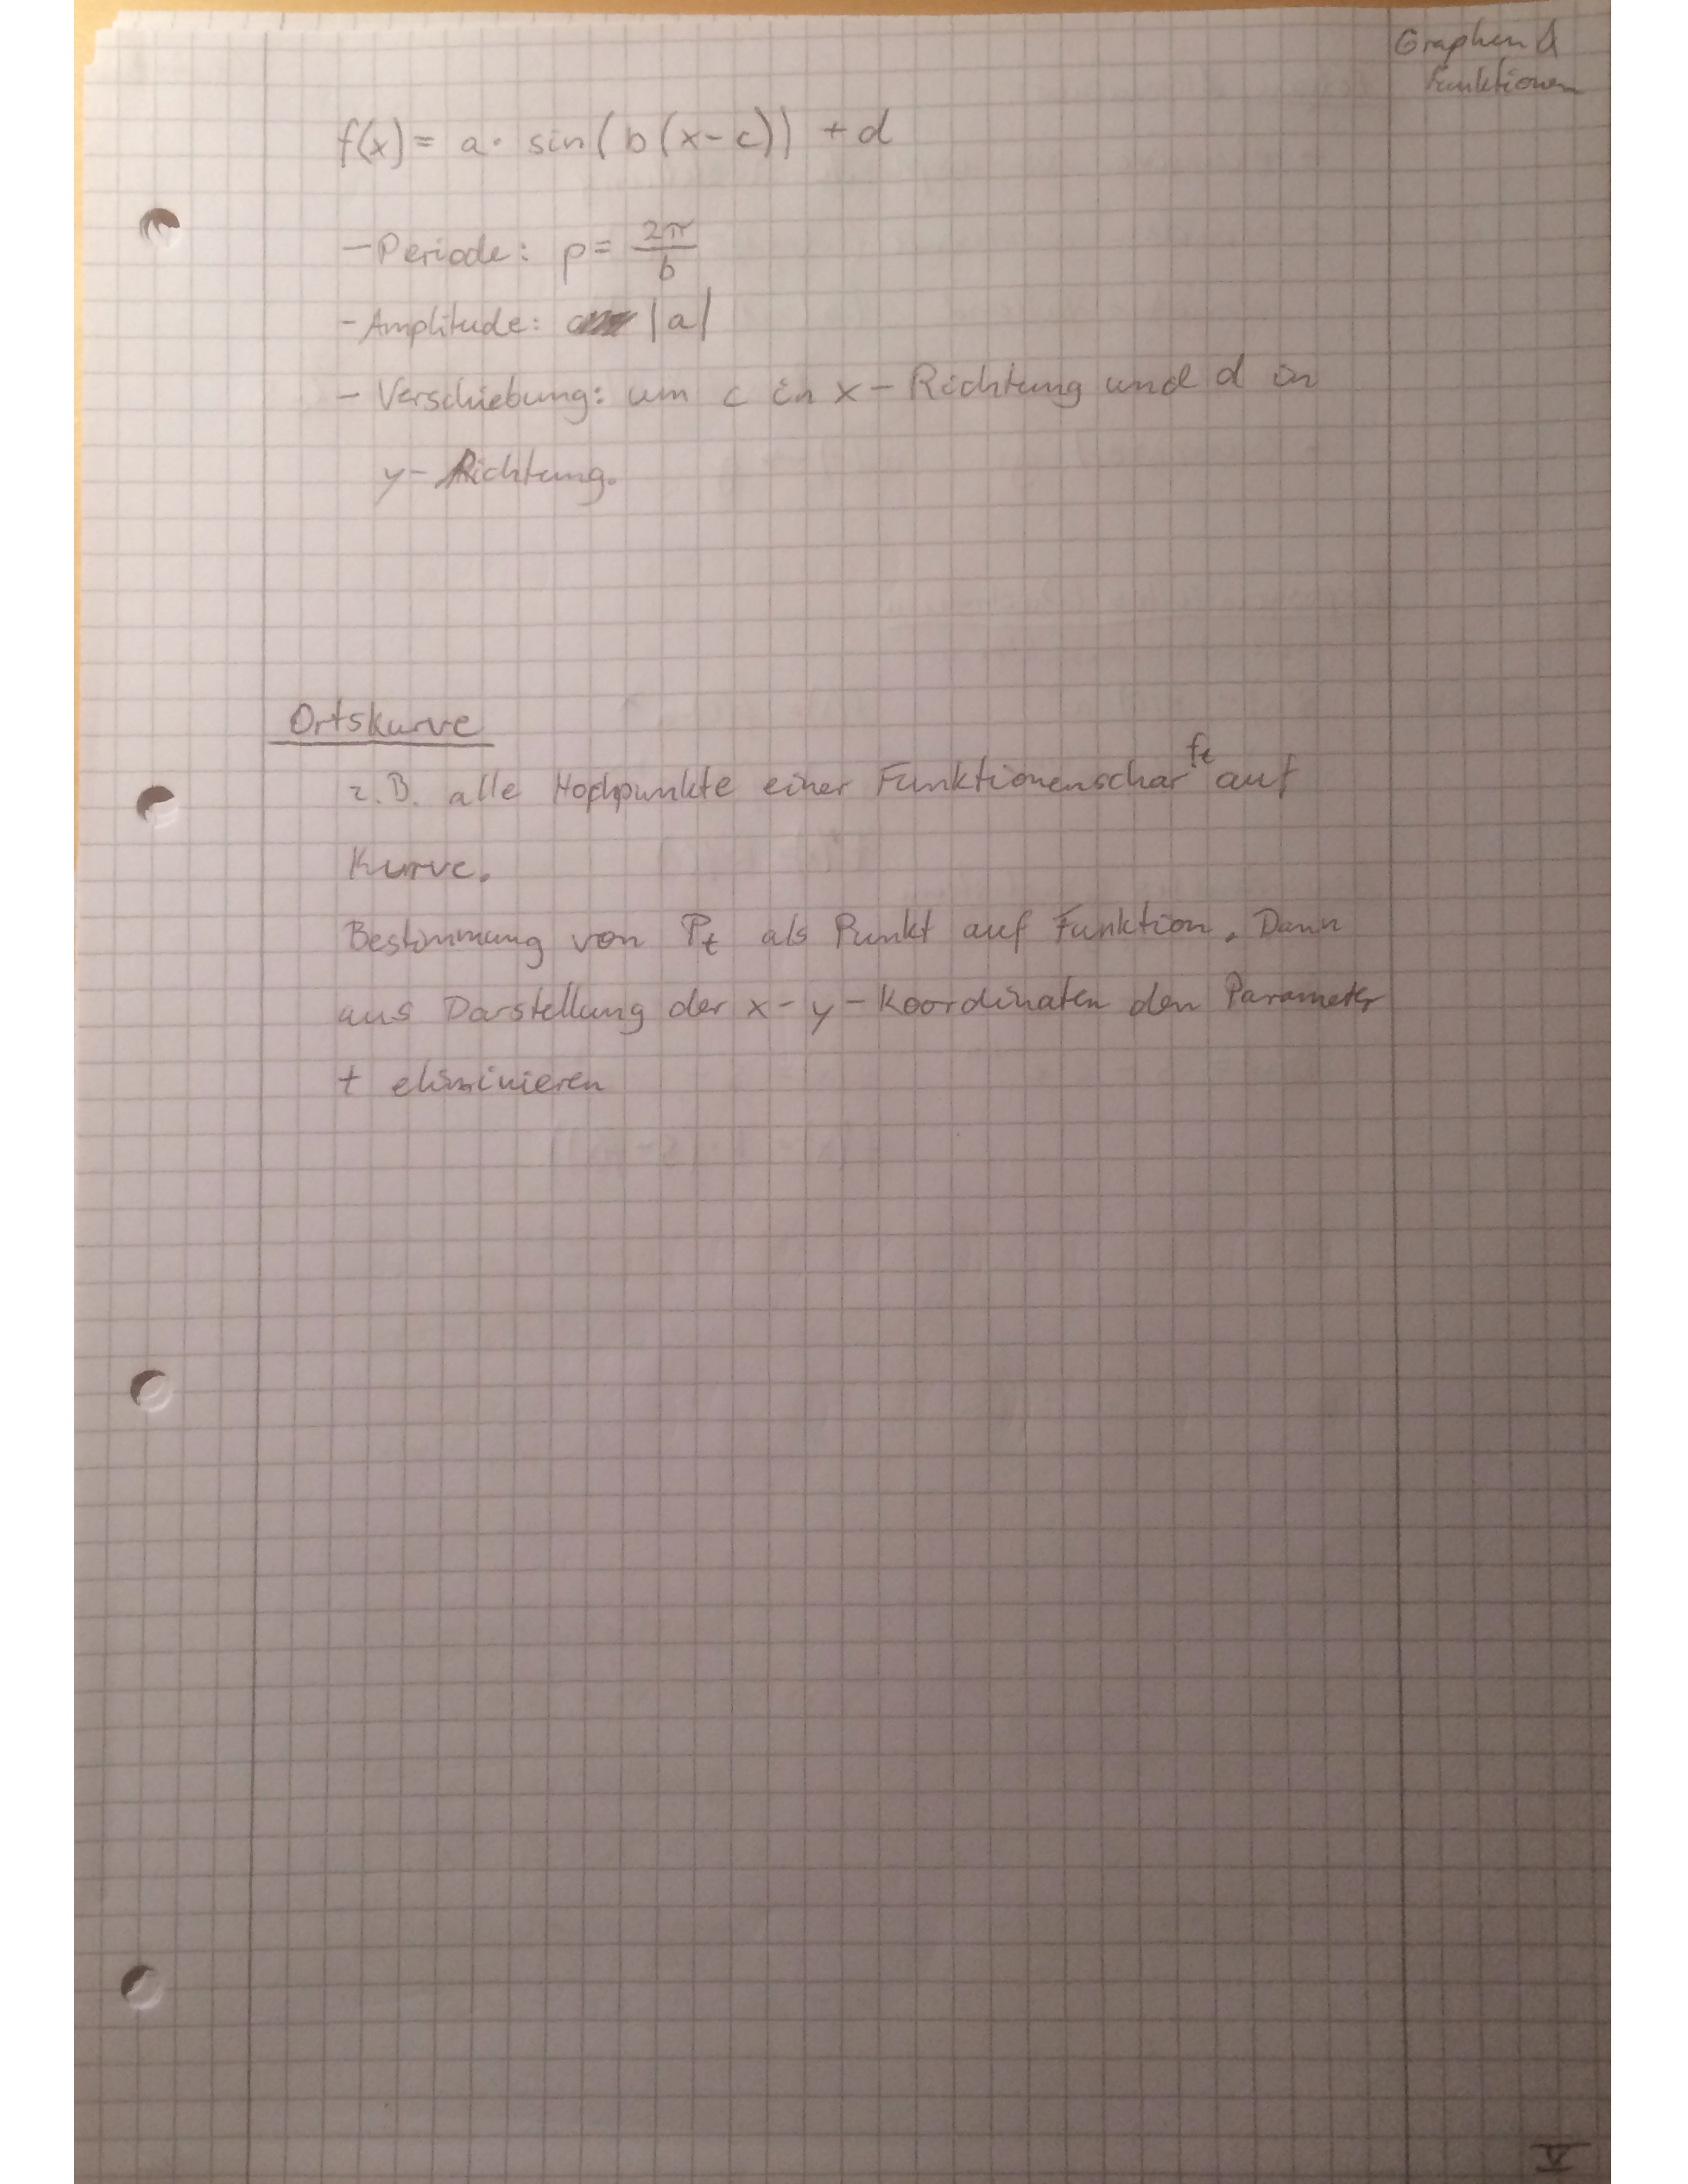 Graphen &
Funktionen
f(x) = a · sin(b(x-c)) + d
- Periode: p = 2π/b
- Amplitude: |a|
- Verschiebung: um c in x-Richtung und d in
y-Richtung.
Ortskurve
z.B. alle Hochpunkte einer Funktionenschar ft auf
Kurve.
Bestimmung von Pt als Punkt auf Funktion. Dann
aus Darstellung der x-y-Koordinaten den Parameter
t eliminieren
V